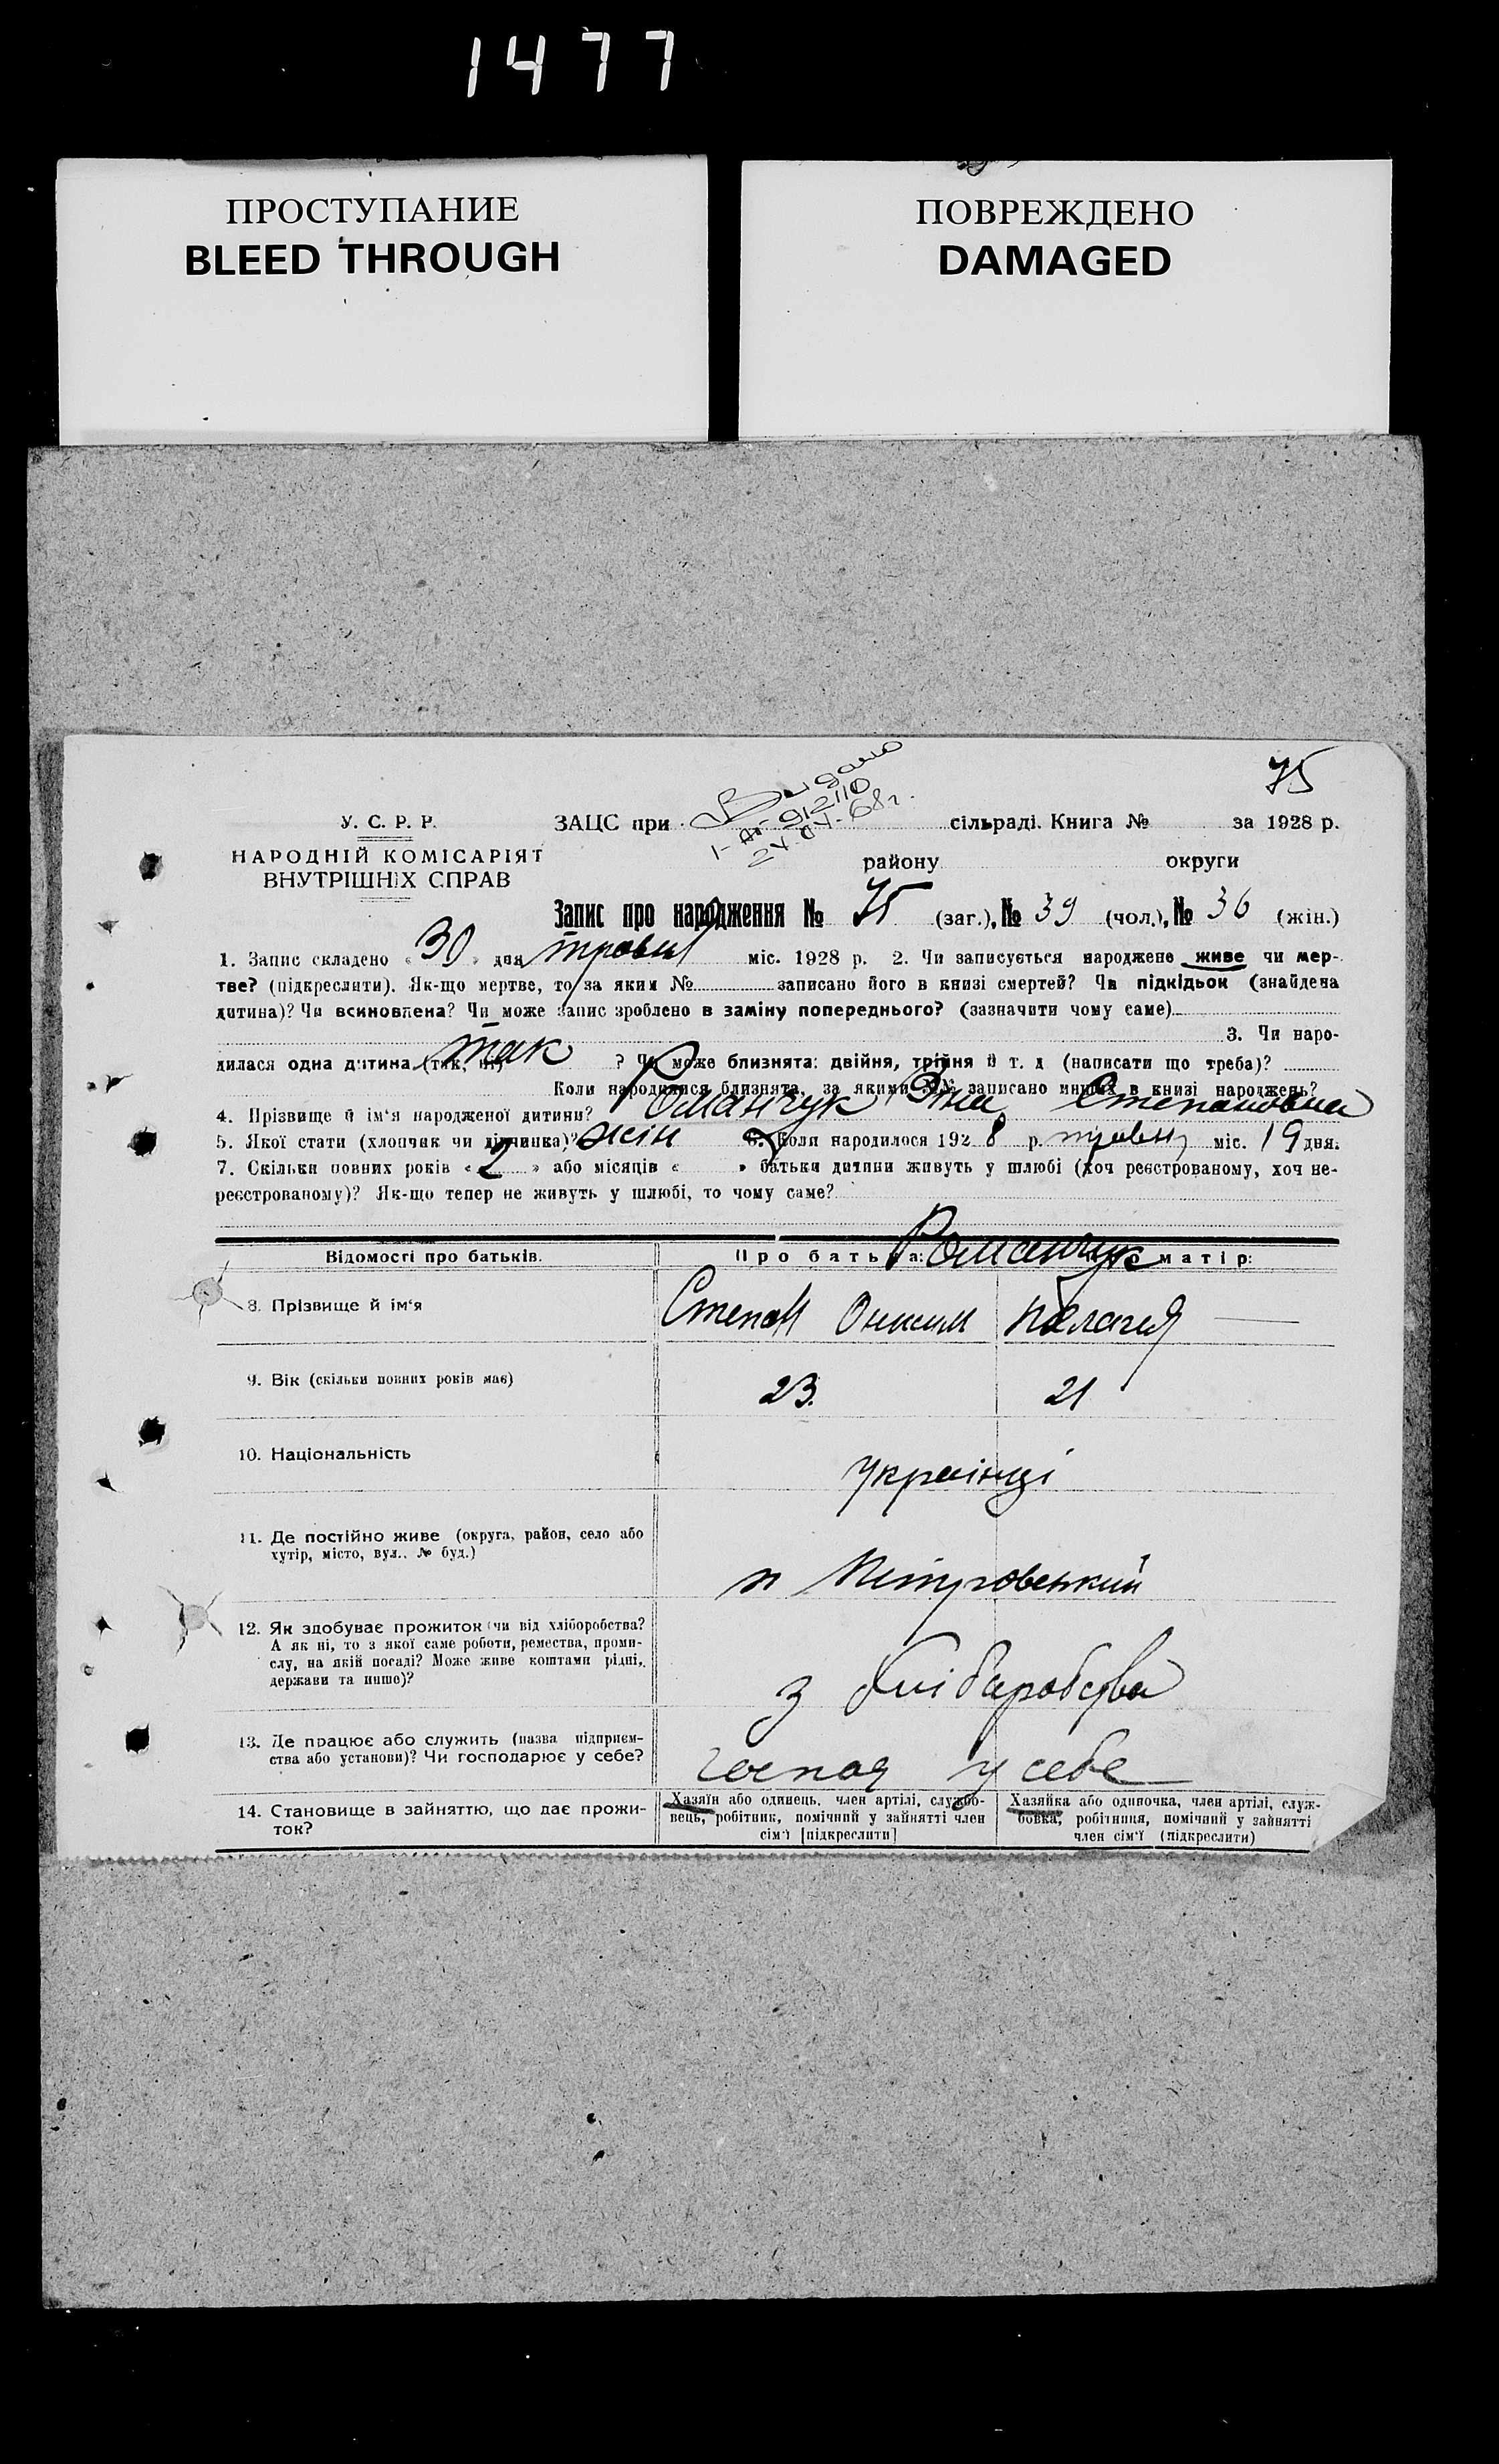 1477
ПРОСТУПАНИЕ
BLEED THROUGH
ПОВРЕЖДЕНО
DAMAGED
75
Видано
I-АП-912110
24.04.68г.
У. С. Р. Р.
НАРОДНІЙ КОМІСАРІЯТ
ВНУТРІШНІХ СПРАВ
ЗАЦС при сільраді. Книга № за 1928 р.
району округи
Запис про народження № 75 (заг.), № 39 (чол.), № 36 (жін.)
1. Запис складено « 30 » дня травня міс. 1928 р. 2. Чи записується народжене живе чи мер-
тве? (підкреслити). Як-що мертве, то за яким № записано його в книзі смертей? Чи підкідьок (знайдена
дитина)? Чи всиновлена? Чи може запис зроблено в заміну попереднього? (зазначити чому саме)
3. Чи наро-
дилася одна дитина (так, ні) так ? Чи може близнята: двійня, трійня й т. д (написати що треба)?
Коли народилися близнята, за якими №№ записано инших в книзі народжень?
4. Прізвище й ім'я народженої дитини? Романчук Степановна
5. Якої стати (хлопчик чи дівчинка)? жін 6. Коли народилося 1928 р. травня міс. 19 дня.
7. Скільки повних років « 2 » або місяців « » батьки дитини живуть у шлюбі (хоч реєстрованому, хоч не-
реєстрованому)? Як-що тепер не живуть у шлюбі, то чому саме?
Відомості про батьків. Про батька: Романчук матір:
8. Прізвище й ім'я Степан Онисим Пелагия
9. Вік (скільки повних років має) 23. 21
10. Національність українці
11. Де постійно живе (округа, район, село або
хутір, місто, вул., № буд.)
Петровський
12. Як здобуває прожиток (чи від хліборобства?
А як ні, то з якої саме роботи, ремества, проми-
слу, на якій посаді? Може живе коштами рідні,
держави та инше)?
з хліборобства
13. Де працює або служить (назва підприєм-
ства або установи)? Чи господарює у себе?
господ у себе
14. Становище в зайняттю, що дає прожи-
ток?
Хазяїн або одинець, член артілі, службо-
вець, робітник, помічний у зайнятті член
сім'ї [підкреслити]
Хазяйка або одиночка, член артілі, служ-
бовка, робітниця, помічний у зайнятті
член сім'ї (підкреслити)